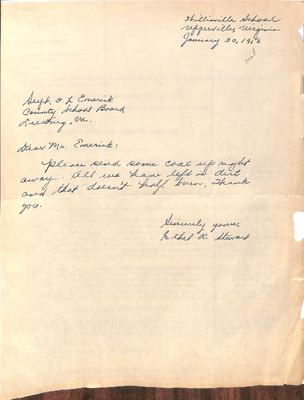 Willisville School
Upperville, Virginia
January 30, 1950
coal
Supt. O. L. Emerick
County School Board
Leesburg, Va.
Dear Mr. Emerick:
Please send some coal up right
away. All we have left is dirt
and that doesn't half burn. Thank
you.
Sincerely yours,
Ethel R. Stewart